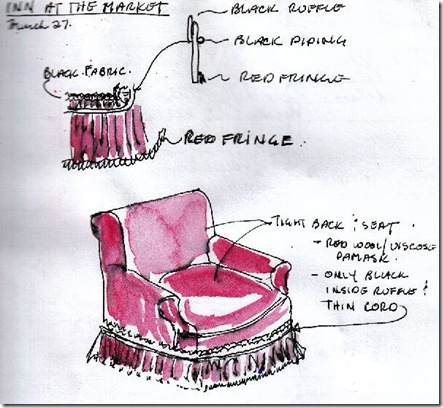 INN AT THE MARKET
March 27.
BLACK RUFFLE
BLACK PIPING
RED FRINGE
BLACK FABRIC.
RED FRINGE.
TIGHT BACK & SEAT.
- RED WOOL/VISCOSE
DAMASK.
- ONLY BLACK
INSIDE RUFFLE &
THIN CORD